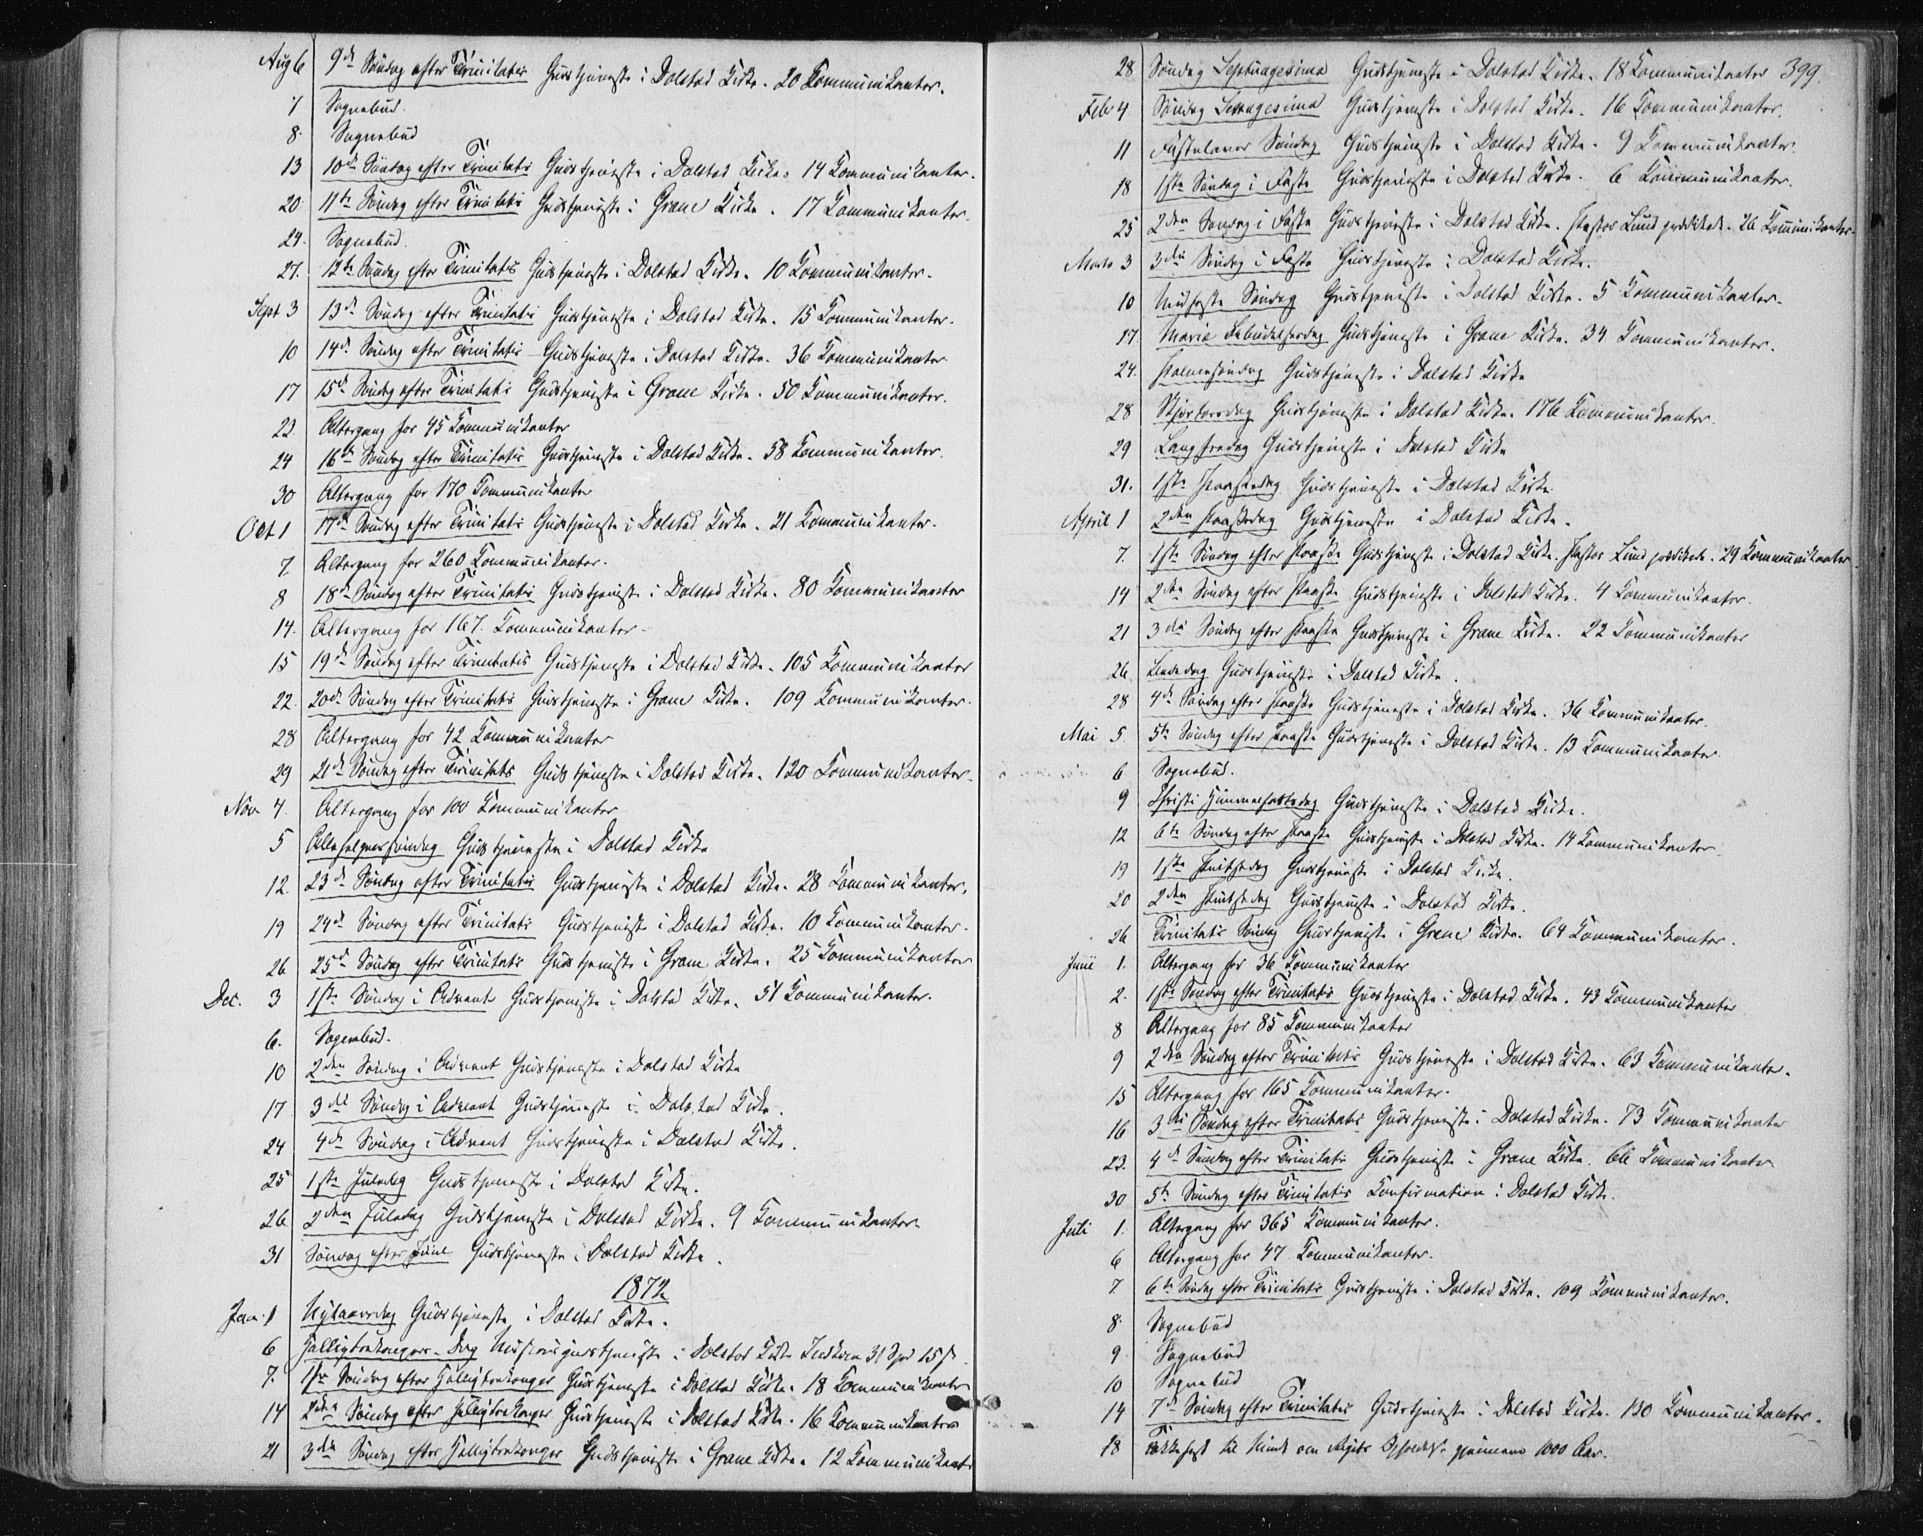 Aug 6 9de Søndag efter Trinitatis Gudstjeneste i Dolstad Kirke. 20 Kommunikanter.
7 Sognebud.
8. Sognebud
13 10de Søndag efter Trinitatis Gudstjeneste i Dolstad Kirke. 14 Kommunikanter.
20 11te Søndag efter Trinitatis Gudstjeneste i Grane Kirke. 17 Kommunikanter.
24. Sognebud.
27. 12te Søndag efter Trinitatis Gudstjeneste i Dolstad Kirke. 10 Kommunikanter.
Sept 3 13de Søndag efter Trinitatis Gudstjeneste i Dolstad Kirke. 15 Kommunikanter.
10 14de Søndag efter Trinitatis Gudstjeneste i Dolstad Kirke. 36 Kommunikanter
17 15de Søndag efter Trinitatis Gudstjeneste i Grane Kirke. 50 Kommunikanter.
22 Altergang for 45 Kommunikanter
24 16de Søndag efter Trinitatis Gudstjeneste i Dolstad Kirke. 58 Kommunikanter.
30 Altergang for 170 Kommunikanter
Oct 1 17de Søndag efter Trinitatis Gudstjeneste i Dolstad Kirke. 21 Kommunikanter.
7. Altergang for 260 Kommunikanter.
8 18de Søndag efter Trinitatis Gudstjeneste i Dolstad Kirke. 80 Kommunikanter
14. Altergang for 167. Kommunikanter.
15 19de Søndag efter Trinitatis Gudstjeneste i Dolstad Kirke. 105 Kommunikanter
22. 20de Søndag efter Trinitatis Gudstjeneste i Grane Kirke. 109 Kommunikanter.
28 Altergang for 42 Kommunikanter
29 21de Søndag efter Trinitatis Gudstjeneste i Dolstad Kirke. 120 Kommunikanter.
Nov 4. Altergang for 100 Kommunikanter
5 Allehelgenssøndag Gudstjeneste i Dolstad Kirke
12. 23de Søndag efter Trinitatis Gudstjeneste i Dolstad Kirke. 28 Kommunikanter.
19 24de Søndag efter Trinitatis Gudstjeneste i Dolstad Kirke. 10 Kommunikanter.
26 25de Søndag efter Trinitatis Gudstjeneste i Grane Kirke. 25 Kommunikanter
Dec. 3 1ste Søndag i Advent Gudstjeneste i Dolstad Kirke. 51 Kommunikanter.
6. Sognebud.
10 2den Søndag i Advent Gudstjeneste i Dolstad Kirke
17 3die Søndag i Advent Gudstjeneste i Dolstad Kirke.
24 4de Søndag i Advent Gudstjeneste i Dolstad Kirke.
25 1ste Juledag Gudstjeneste i Dolstad Kirke.
26 2den Juledag Gudstjeneste i Dolstad Kirke. 9 Kommunikanter
31 Søndag efter Juul Gudstjeneste i Dolstad Kirke.
1872
Jan. 1 Nytaarsdag Gudstjeneste i Dolstad Kirke.
6 Helligtrekongers-Dag Missionsgudstjeneste i Dolstad Kirke 31 Spd 15 s
7. 1ste Søndag efter Helligtrekonger Gudstjeneste i Dolstad Kirke. 18 Kommunikanter
14 2den Søndag efter Helligtrekonger Gudstjeneste i Dolstad Kirke. 16 Kommunikanter
21 3die Søndag efter Helligtrekonger Gudstjeneste i Grane Kirke. 12 Kommunikant
28 Søndag Septuagesima Gudstjeneste i Dolstad Kirke. 18 Kommunikanter 399.
Feb 4 Søndag Sexagesima Gudstjeneste i Dolstad Kirke. 16 Kommunikanter.
11 Fastelavns Søndag Gudstjeneste i Dolstad Kirke. 9 Kommunikanter.
18 1ste Søndag i Faste Gudstjeneste i Dolstad Kirke. 6 Kommunikanter.
25 2den Søndag i Faste Gudstjeneste i Dolstad Kirke. Pastor Lund prædikede. 26 Kommunikanter
Marts 3 3die Søndag i Faste Gudstjeneste i Dolstad Kirke.
10 Midfaste Søndag Gudstjeneste i Dolstad Kirke. 5 Kommunikanter.
17. Mariæ Bebudelsesdag Gudstjeneste i Grane Kirke. 34 Kommunikanter.
24. Palmesøndag Gudstjeneste i Dolstad Kirke
28 Skjertorsdag Gudstjeneste i Dolstad Kirke. 176 Kommunikanter.
29 Langfredag Gudstjeneste i Dolstad Kirke
31. 1ste Paaskedag Gudstjeneste i Dolstad Kirke
April 1 2den Paaskedag Gudstjeneste i Dolstad Kirke.
7. 1ste Søndag efter Paaske Gudstjeneste i Dolstad Kirke. Pastor Lund prædikede. 29 Kommunikanter
14 2den Søndag efter Paaske Gudstjeneste i Dolstad Kirke. 4 Kommunikanter.
21 3die Søndag efter Paaske Gudstjeneste i Grane Kirke. 22 Kommunikanter
26. Bededag Gudstjeneste i Dolstad Kirke.
28 4de Søndag efter Paaske Gudstjeneste i Dolstad Kirke. 36 Kommunikanter.
Mai 5. 5te Søndag efter Paaske Gudstjeneste i Dolstad Kirke. 13 Kommunikanter
6 Sognebud.
9 Christi Himmelfartsdag Gudstjeneste i Dolstad Kirke.
12 6te Søndag efter Paaske Gudstjeneste i Dolstad Kirke. 14 Kommunikanter.
19 1ste Pintsedag Gudstjeneste i Dolstad Kirke.
20 2den Pintsedag Gudstjeneste i Dolstad Kirke.
26 Trinitatis Søndag Gudstjeneste i Grane Kirke. 64 Kommunikanter.
Junii 1. Altergang for 36 Kommunikanter
2. 1ste Søndag efter Trinitatis Gudstjeneste i Dolstad Kirke. 43 Kommunikanter
8 Altergang for 85 Kommunikanter
9 2den Søndag efter Trinitatis Gudstjeneste i Dolstad Kirke. 63 Kommunikanter.
15 Altergang for 165 Kommunikanter.
16 3die Søndag efter Trinitatis Gudstjeneste i Dolstad Kirke. 73 Kommunikanter
23. 4de Søndag efter Trinitatis Gudstjeneste i Grane Kirke. 66 Kommunikanter.
30 5te Søndag efter Trinitatis Konfirmation i Dolstad Kirke.
Juli 1. Altergang for 365 Kommunikanter.
6 Altergang for 47 Kommunikanter.
7 6te Søndag efter Trinitatis Gudstjeneste i Dolstad Kirke. 109 Kommunikanter.
8. Sognebud
9. Sognebud
10 Sognebud
14 7de Søndag efter Trinitatis Gudstjeneste i Dolstad Kirke. 130 Kommunikanter.
18 Takkefest til Minde om Rigets gjennem 1000 Aar.